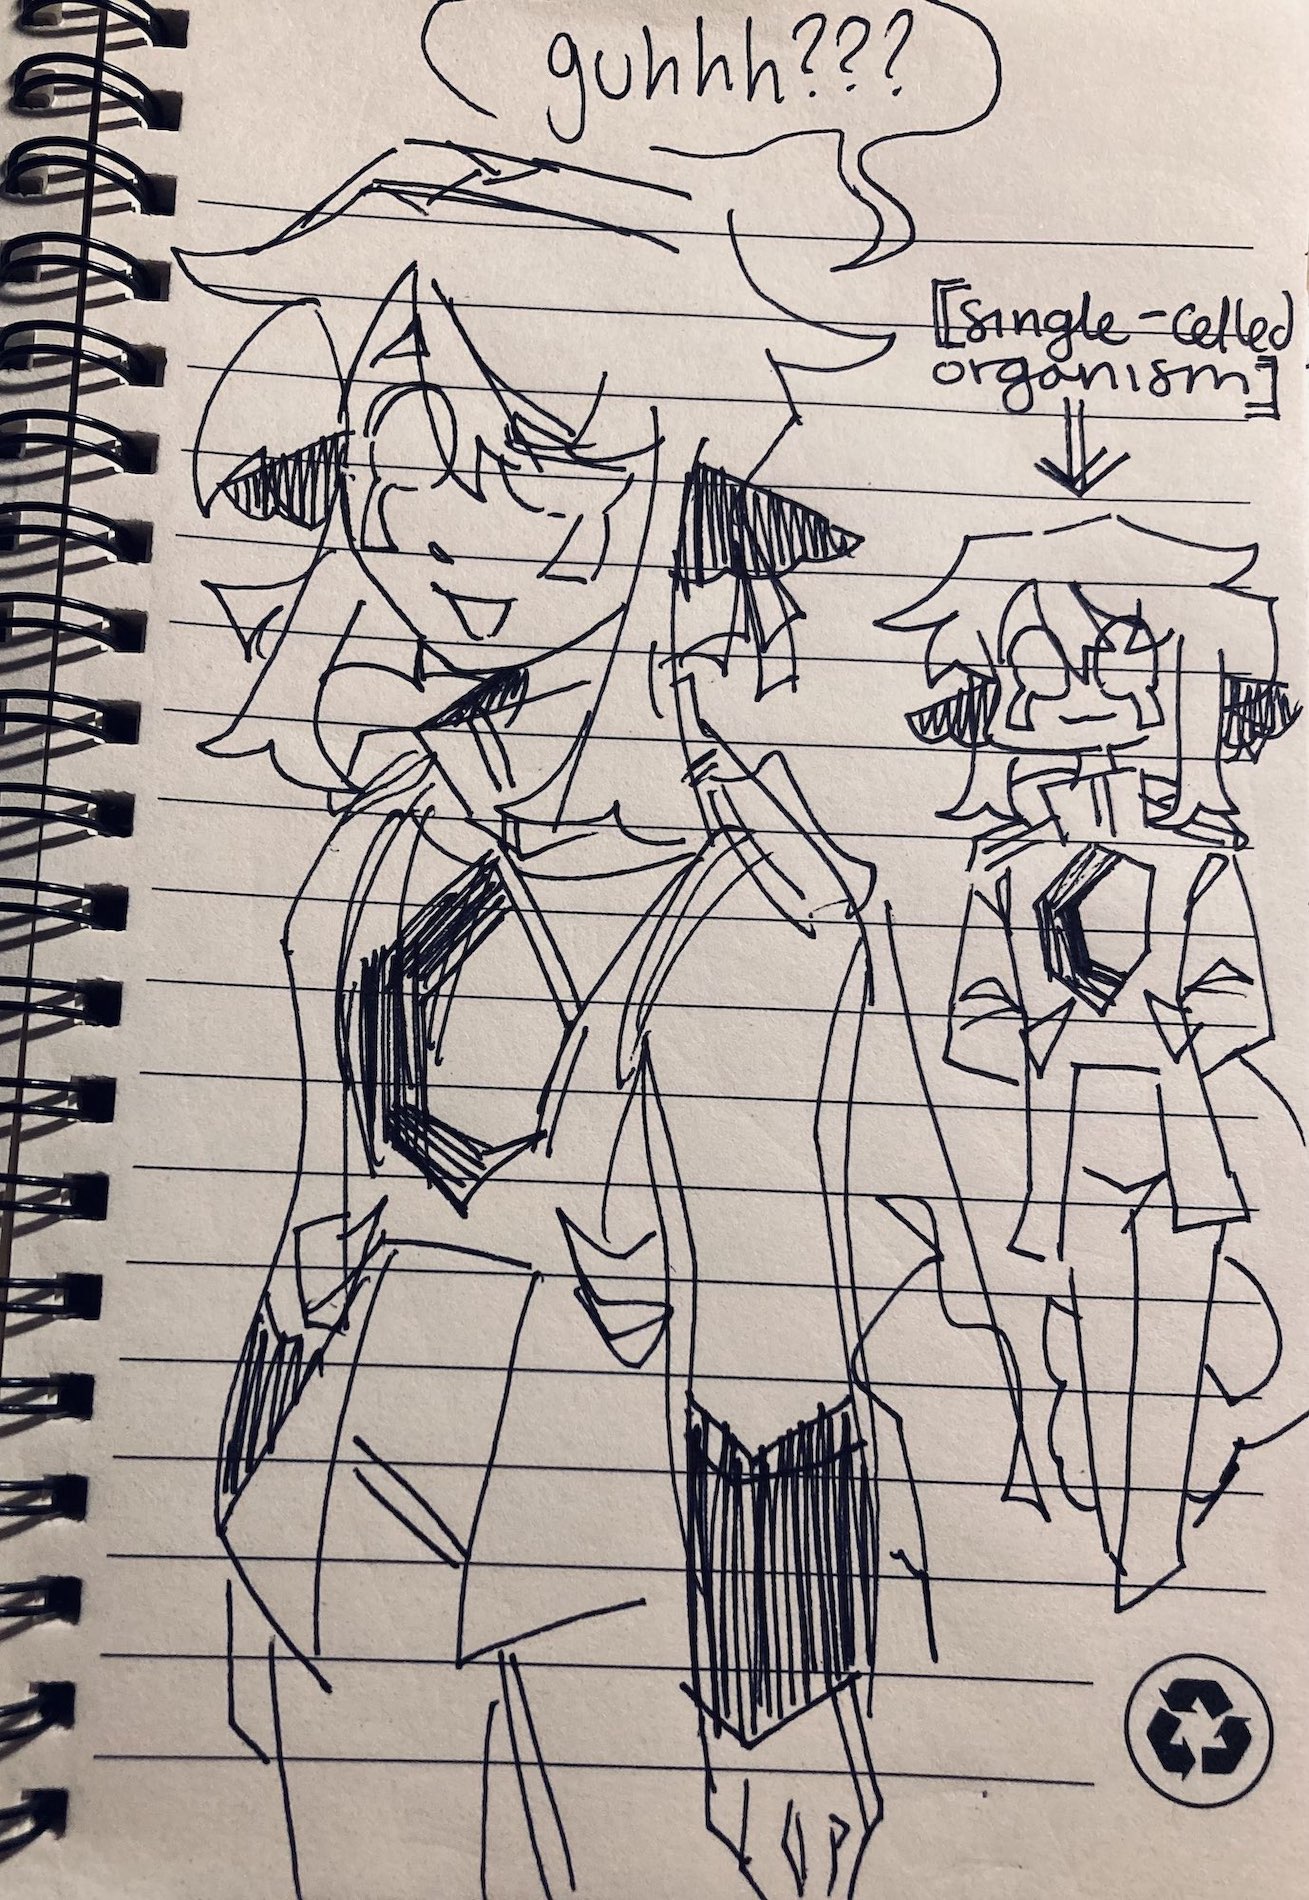 guhhh???
[single-celled
organism]